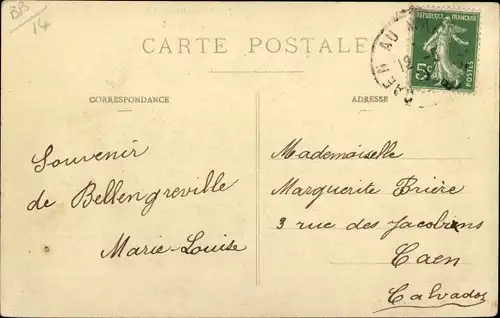 BB
14
CARTE POSTALE
RÉPUBLIQUE FRANÇAISE
5c
POSTES
CAEN AU M
12
CORRESPONDANCE
ADRESSE
Souvenir
de Bellengreville
Marie-Louise
Mademoiselle
Marguerite Brière
3 rue des Jacobins
Caen
Calvados